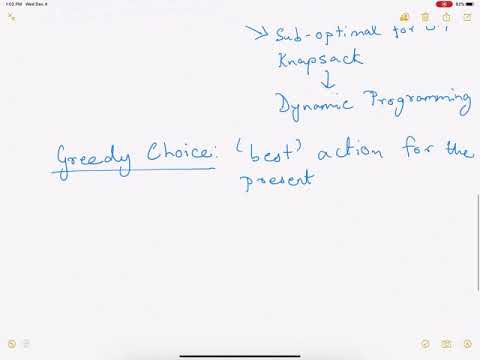 1:02 PM Wed Dec 4
92%
Sub-optimal for
Knapsack
Dynamic Programming
Greedy Choice: (best) action for the
present